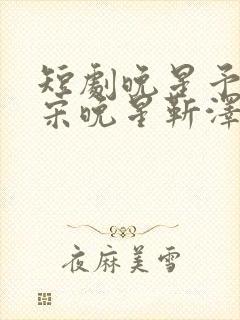 短劇晚星予
宋晚星靳澤
夜麻美雪